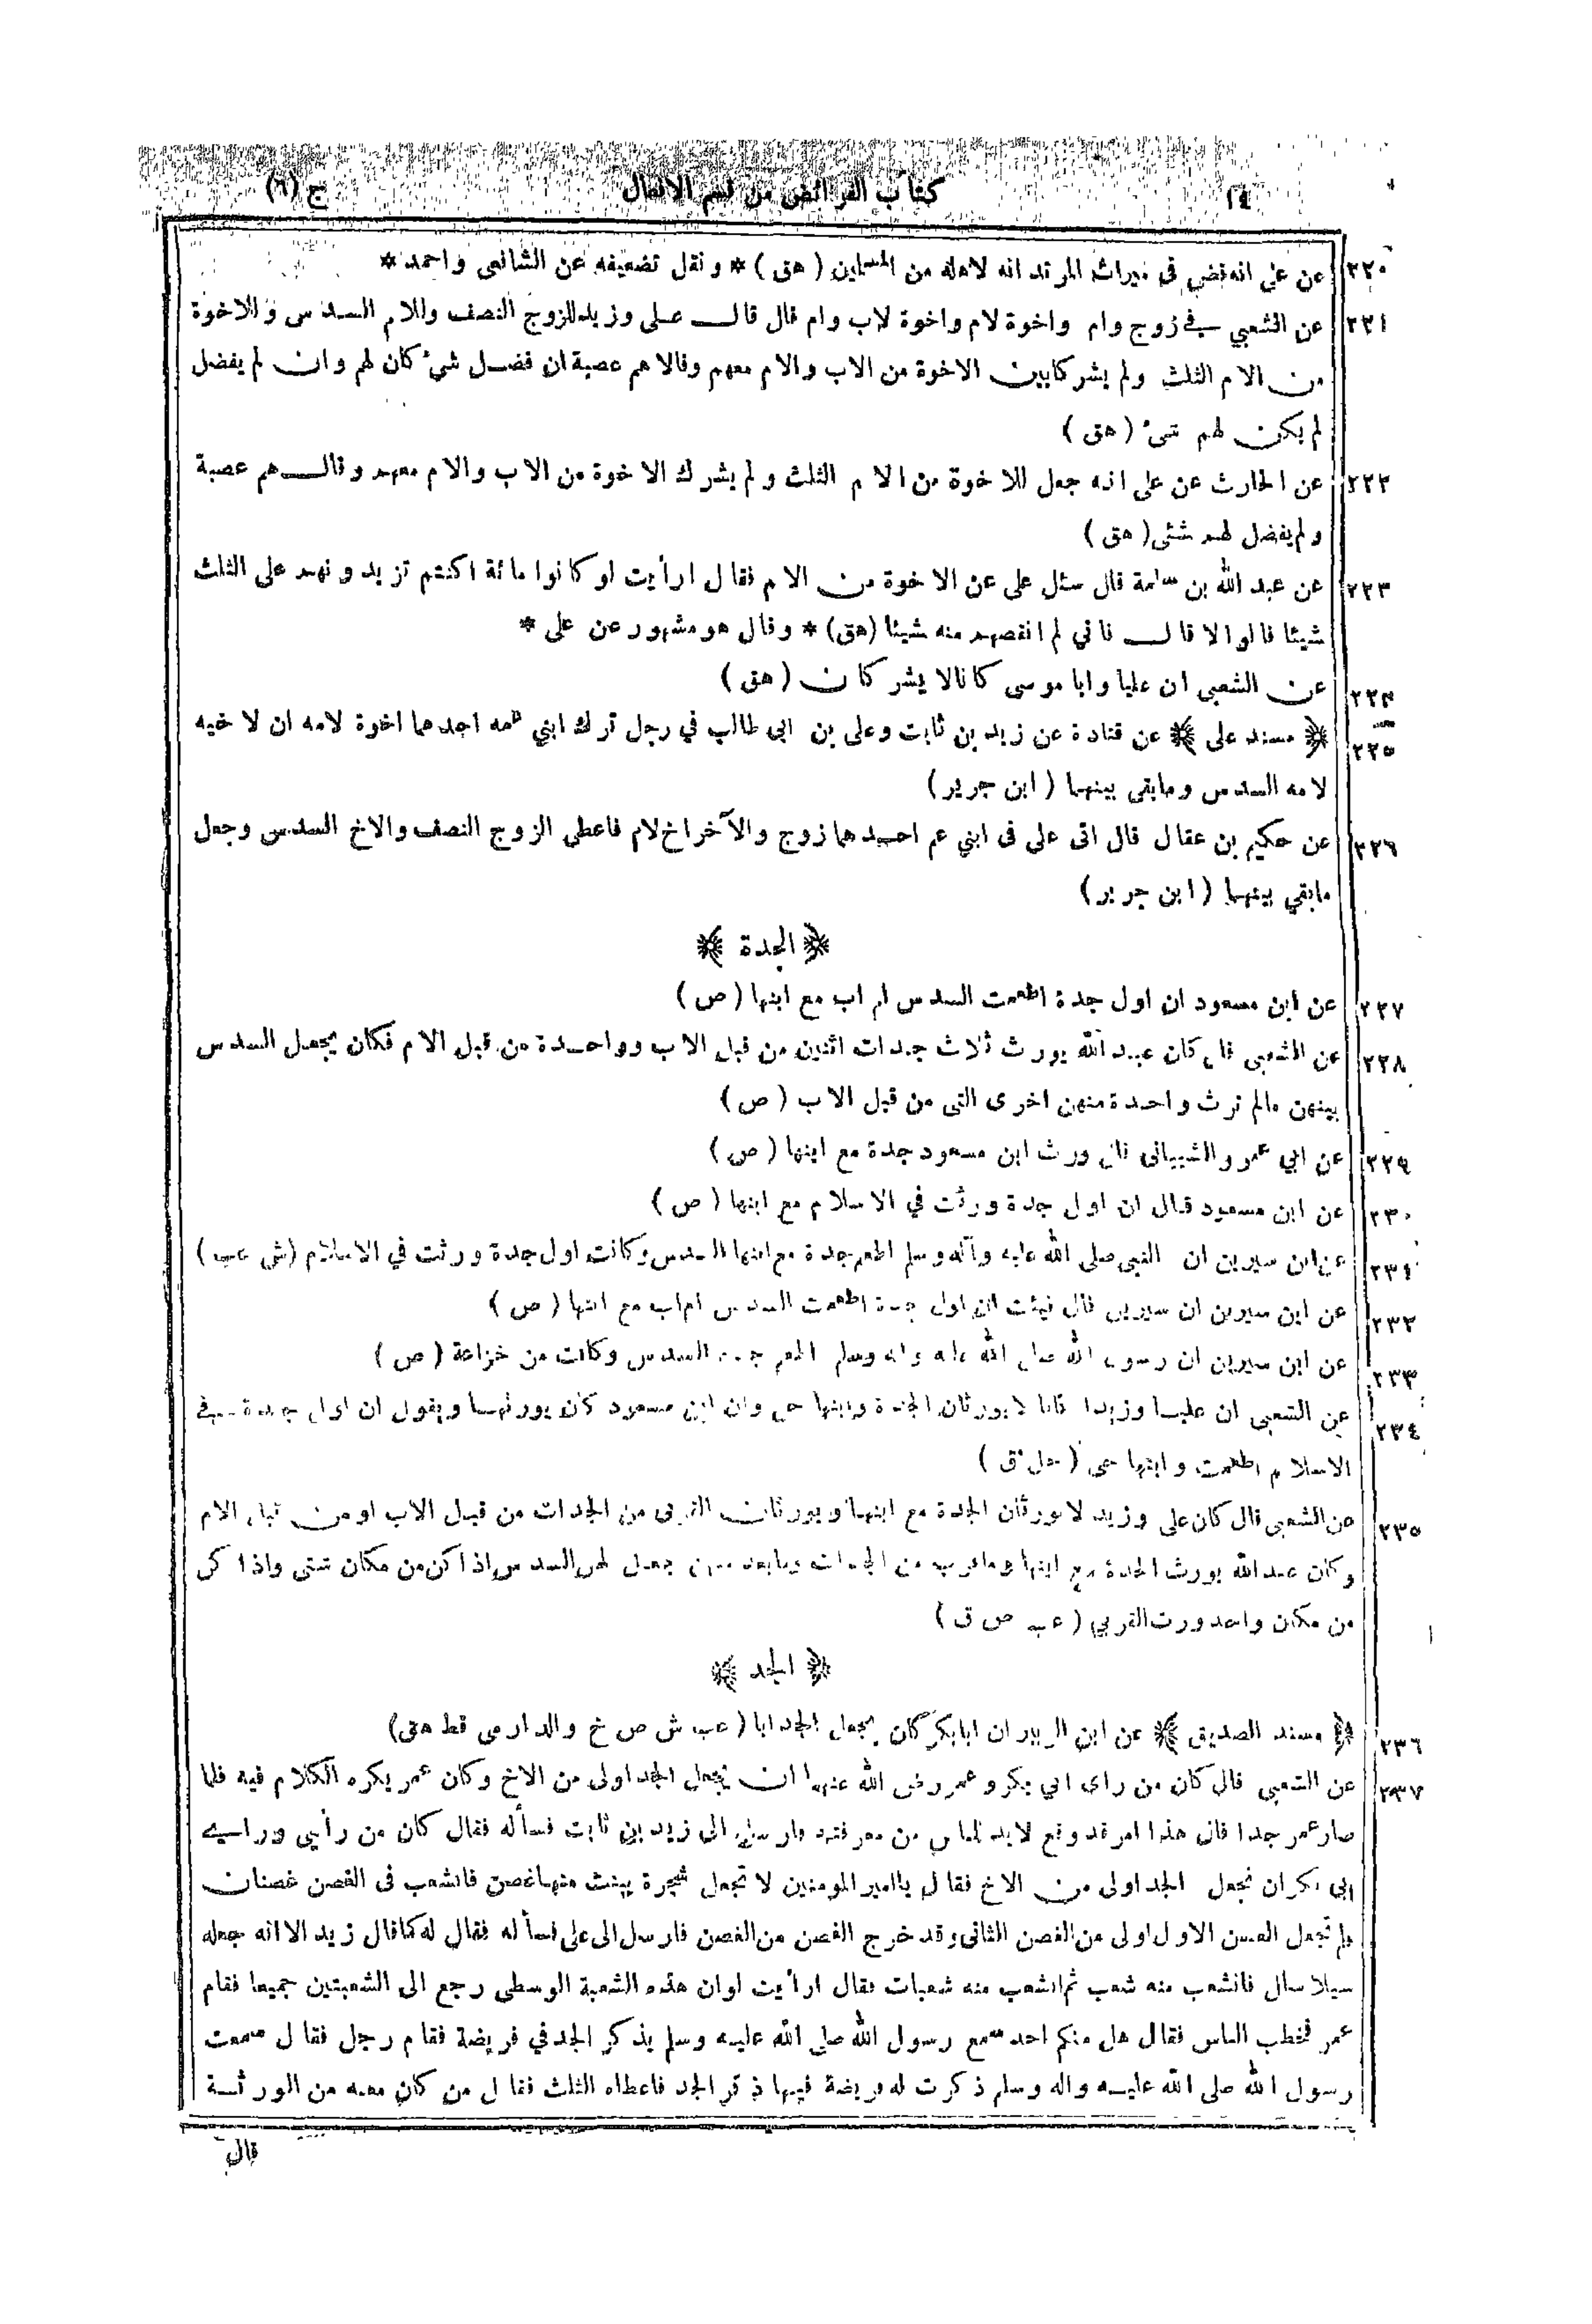 ١٤ كتاب الفرائض من قسم الافعال ج (٦)
٢٢٠ عن على انه قضى فى ميراث المرتد انه لاهله من المسلمين ( هق ) * ونقل تضعيفه عن الشافعى واحمد *
٢٢١ عن الشعبي في زوج وام واخوة لام واخوة لاب وام قال قال على وزيد للزوج النصف وللام السدس وللاخوة
من الام الثلث ولم يشركا بين الاخوة من الاب والام معهم وقالا هم عصبة ان فضل شئ كان لهم وان لم يفضل
لم يكن لهم شئ ( هق )
٢٢٢ عن الحارث عن على انه جعل للاخوة من الام الثلث ولم يشرك الاخوة من الاب والام معهم وقال هم عصبة
ولم يفضل لهم شئى ( هق )
٢٢٣ عن عبد الله بن سلمة قال سئل على عن الاخوة من الام فقال ارأيت لو كانوا مائة اكنتم تزيدونهم على الثلث
شيئا قالوا لا قال فانى لم انقصهم منه شيئا (هق) * وقال هو مشهور عن على *
٢٢٤ عن الشعبى ان عليا وابا موسى كانا لا يشركان ( هق )
٢٢٥ ﴿ مسند على ﴾ عن قتادة عن زيد بن ثابت وعلى بن ابى طالب في رجل ترك ابني عمه احدهما اخوة لامه ان لاخيه
لامه السدس وما بقى بينهما ( ابن جرير )
٢٢٦ عن حكيم بن عقال قال اتى على فى ابني عم احدهما زوج والآخر اخ لام فاعطى الزوج النصف والاخ السدس وجعل
مابقي بينهما ( ابن جرير )
﴿ الجدة ﴾
٢٢٧ عن ابن مسعود ان اول جدة اطعمت السدس ام اب مع ابنها ( ص )
٢٢٨ عن الشعبى قال كان عبد الله يورث ثلاث جدات اثنتين من قبل الاب وواحدة من قبل الام فكان يجعل السدس
بينهن مالم ترث واحدة منهن اخرى التى من قبل الاب ( ص )
٢٢٩ عن ابي عمرو الشيبانى قال ورث ابن مسعود جدة مع ابنها ( ص )
٢٣٠ عن ابن مسعود قال ان اول جدة ورثت في الاسلام مع ابنها ( ص )
٢٣١ عن ابن سيرين ان النبى صلى الله عليه وآله وسلم اطعم جدة مع ابنها السدس وكانت اول جدة ورثت في الاسلام (ش عب )
٢٣٢ عن ابن سيرين ان سيرين قال نبئت ان اول جدة اطعمت السدس ام اب مع ابنها ( ص )
٢٣٣ عن ابن سيرين ان رسول الله صلى الله عليه واله وسلم اطعم جدة السدس وكانت من خزاعة ( ص )
٢٣٤ عن الشعبى ان عليا وزيدا كانا لا يورثان الجدة وابنها حى وان ابن مسعود كان يورثها ويقول ان اول جدة في
الاسلام اطعمت وابنها حى ( ق )
٢٣٥ عن الشعبى قال كان على وزيد لا يورثان الجدة مع ابنها ويورثان القربى من الجدات من قبل الاب او من قبل الام
وكان عبد الله يورث الجدة مع ابنها وما قرب من الجدات وما بعد منهن جعل لهن السدس اذا كن من مكان شتى واذا كن
من مكان واحد ورث القربى ( عب ص ق )
﴿ الجد ﴾
٢٣٦ ﴿ مسند الصديق ﴾ عن ابن الزبير ان ابا بكر كان يجعل الجد ابا ( عب ش ص خ والدارمى قط هق )
٢٣٧ عن الشعبى قال كان من راى ابي بكر وعمر رضى الله عنهما ان يجعل الجد اولى من الاخ وكان عمر يكره الكلام فيه فلما
صار عمر جدا قال هذا امر قد وقع لابد للناس من معرفته فارسل الى زيد بن ثابت فسأله فقال كان من رأيى ورأى
ابى بكر ان نجعل الجد اولى من الاخ فقال يا امير المومنين لا تجعل شجرة ينبت منها غصن فانشعب فى الغصن غصنان
فلم تجعل الغصن الاول اولى من الغصن الثانى وقد خرج الغصن من الغصن فارسل الى على فسأله فقال له كما قال زيد الا انه جعله
سيلا سال فانشعب منه شعب ثم انشعب منه شعبات فقال ارأيت لو ان هذه الشعبة الوسطى رجع الى الشعبتين جميعا فقام
عمر فخطب الناس فقال هل منكم احد سمع رسول الله صلى الله عليه وسلم يذكر الجد في فريضة فقام رجل فقال سمعت
رسول الله صلى الله عليه واله وسلم ذكرت له فريضة فيها ذكر الجد فاعطاه الثلث فقال من كان معه من الورثة
قال